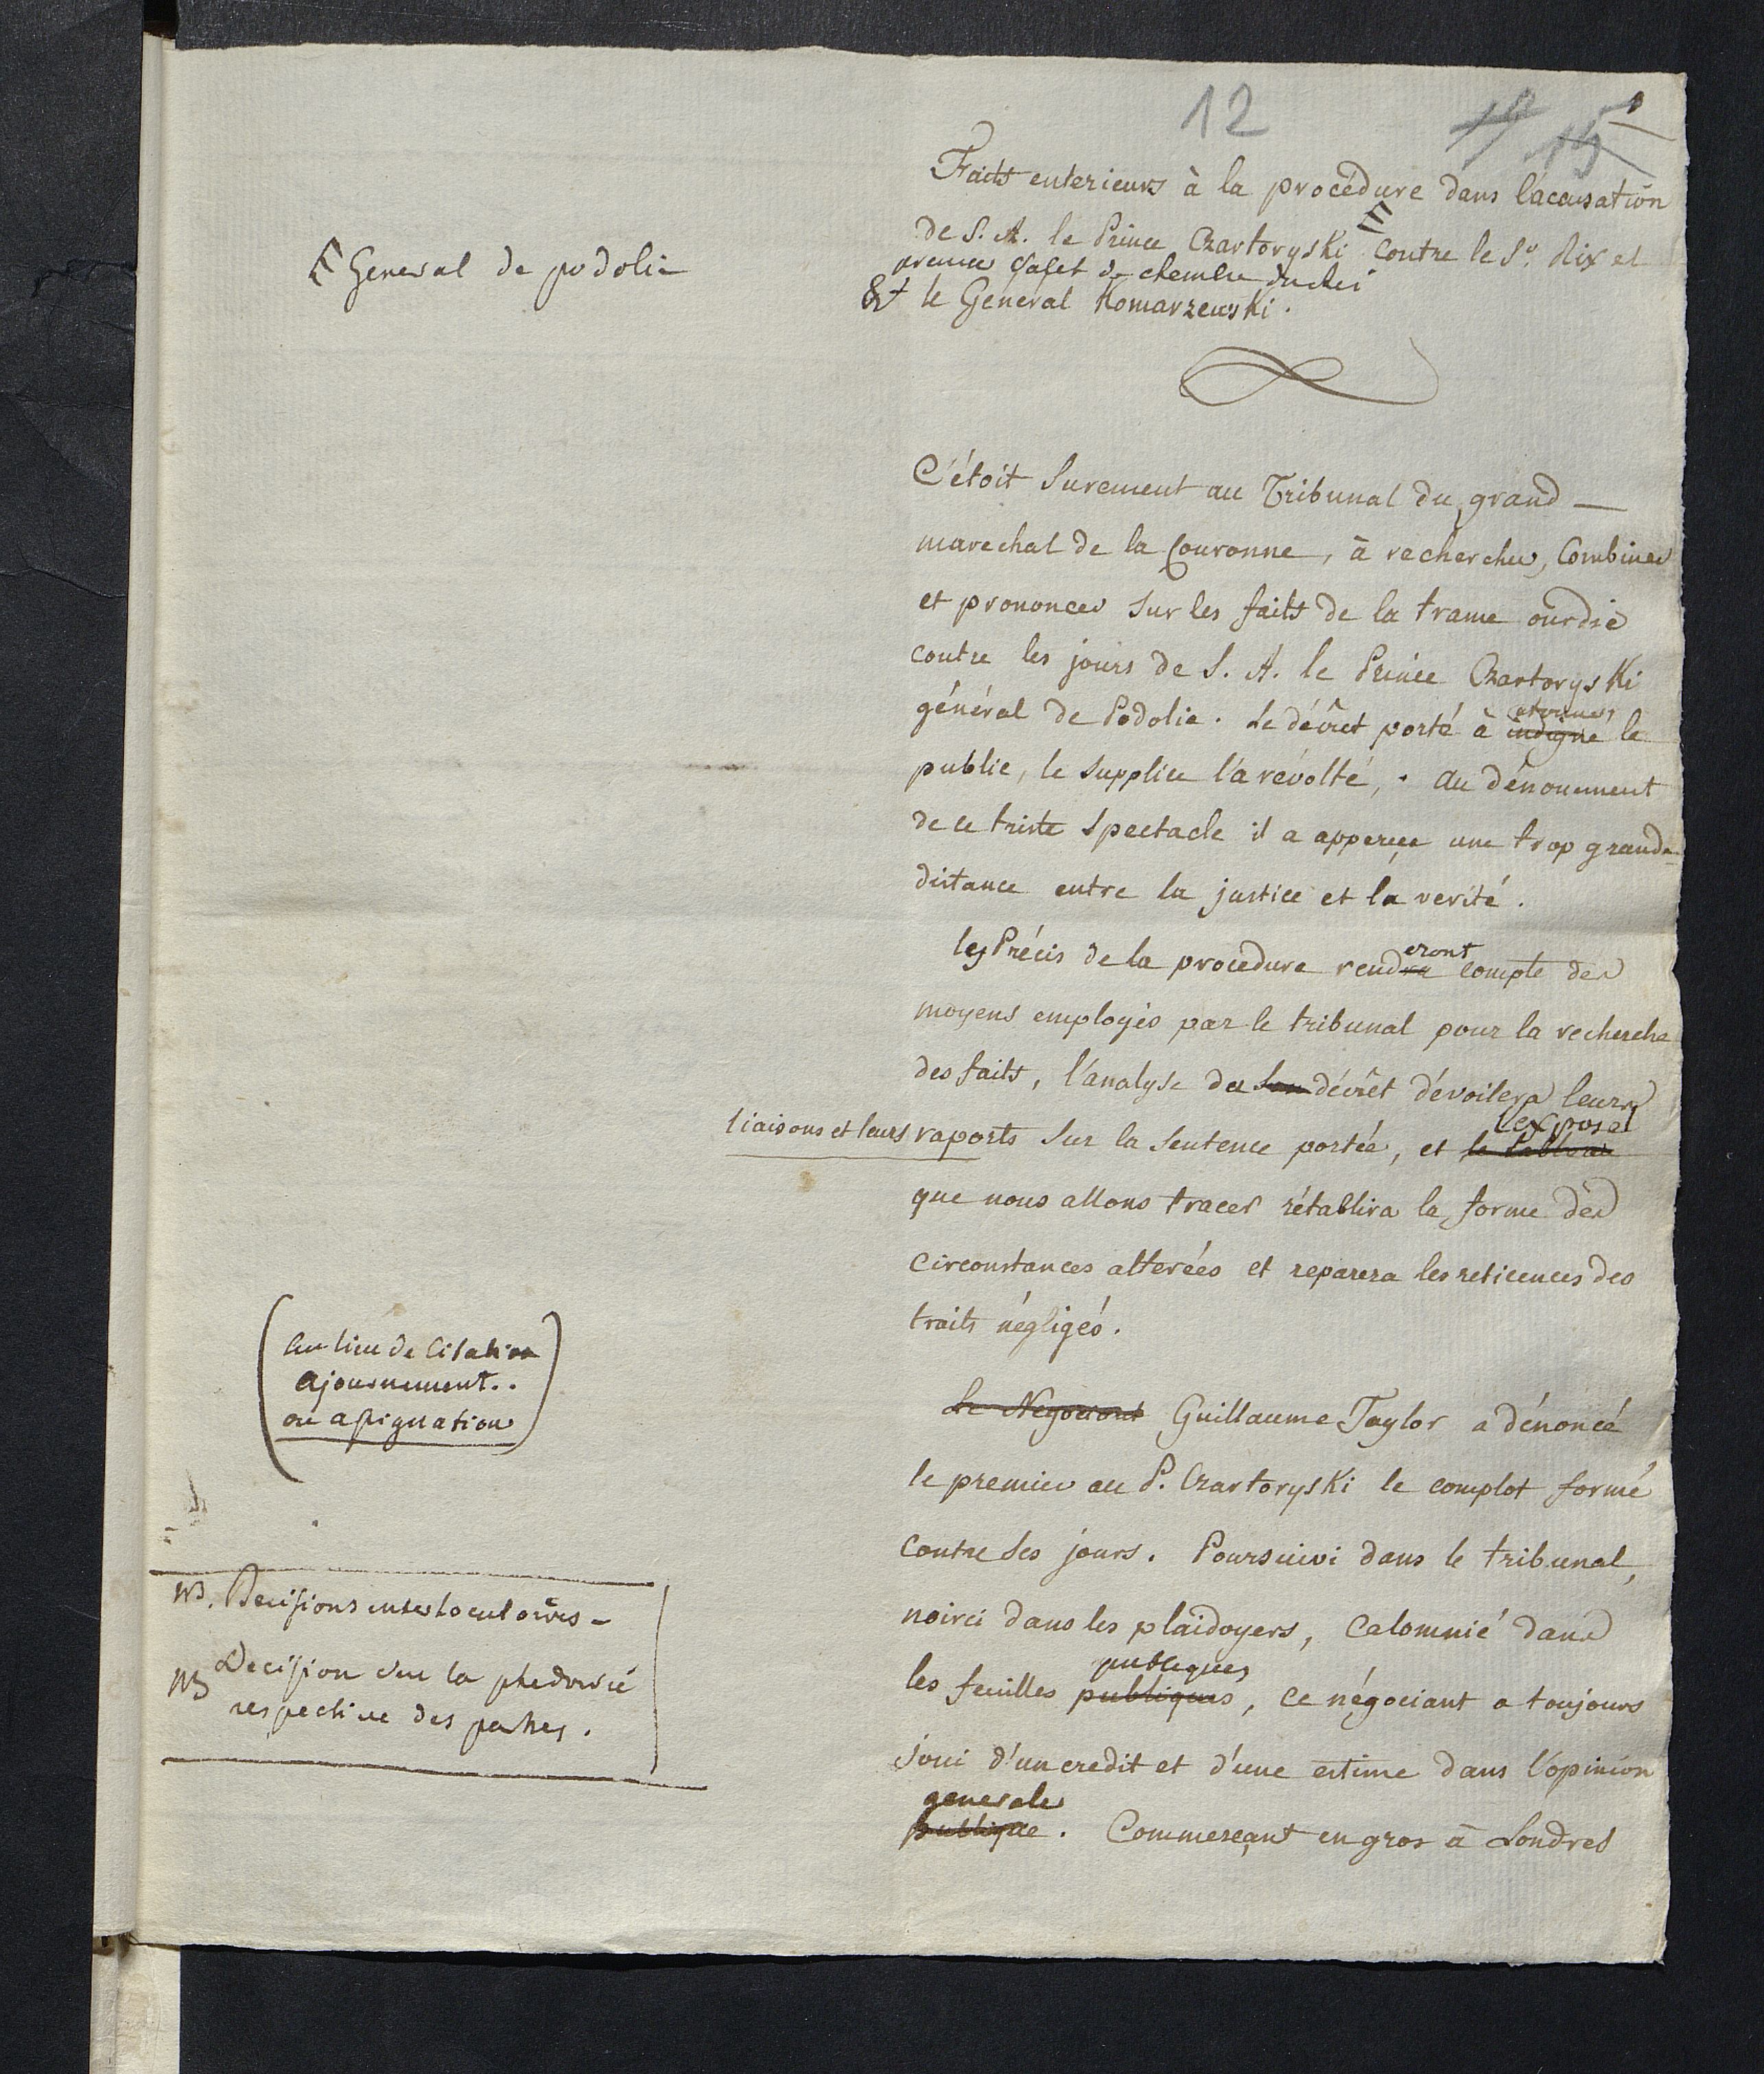 12
19 15
Faits enterieurs à la procédure dans l'acusation
de S. A. le Prince Czartoryski contre le Sr. Rix et
premier valet de chambre du Roi
& le General Komarzewski.
General de podolie
C'étoit Surement au Tribunal du grand
marechal de la Couronne, à rechercher, Combiner
et prononcer Sur les faits de la trame ourdie
contre les jours de S. A. le Prince Czartoryski
général de Podolie. Le décret porté à indigné le
public, le Supplice l'a révolté, . au dénouement
de ce triste Spectacle il a apperçu une trop grande
distance entre la justice et la verité.
les Précis de la procedure rendra eront compte des
moyens employés par le tribunal pour la recherche
des faits, l'analyse du Son décret dévoilera leurs
liaisons et leurs raports Sur la Sentence portée, et le tableau l'exposé
que nous allons tracer rétablira la forme des
Circonstances alterées et reparera les reticences des
traits négligés.
(au lieu de Citation
Ajournement..
ou assignation)
Le Negociant Guillaume Taylor a dénoncé
le premier au P. Czartoryski le complot formé
Contre Ses jours. Poursuivi dans le tribunal,
noirci dans les plaidoyers, Calomnié dans
publiques
les feuilles publiques, ce négociant a toujours
joui d'un credit et d'une estime dans l'opinion
generale
publique. Commerçant en gros à Londres
NB. Decisions interlocutoires -
NB Decision sur la
respective des parties.